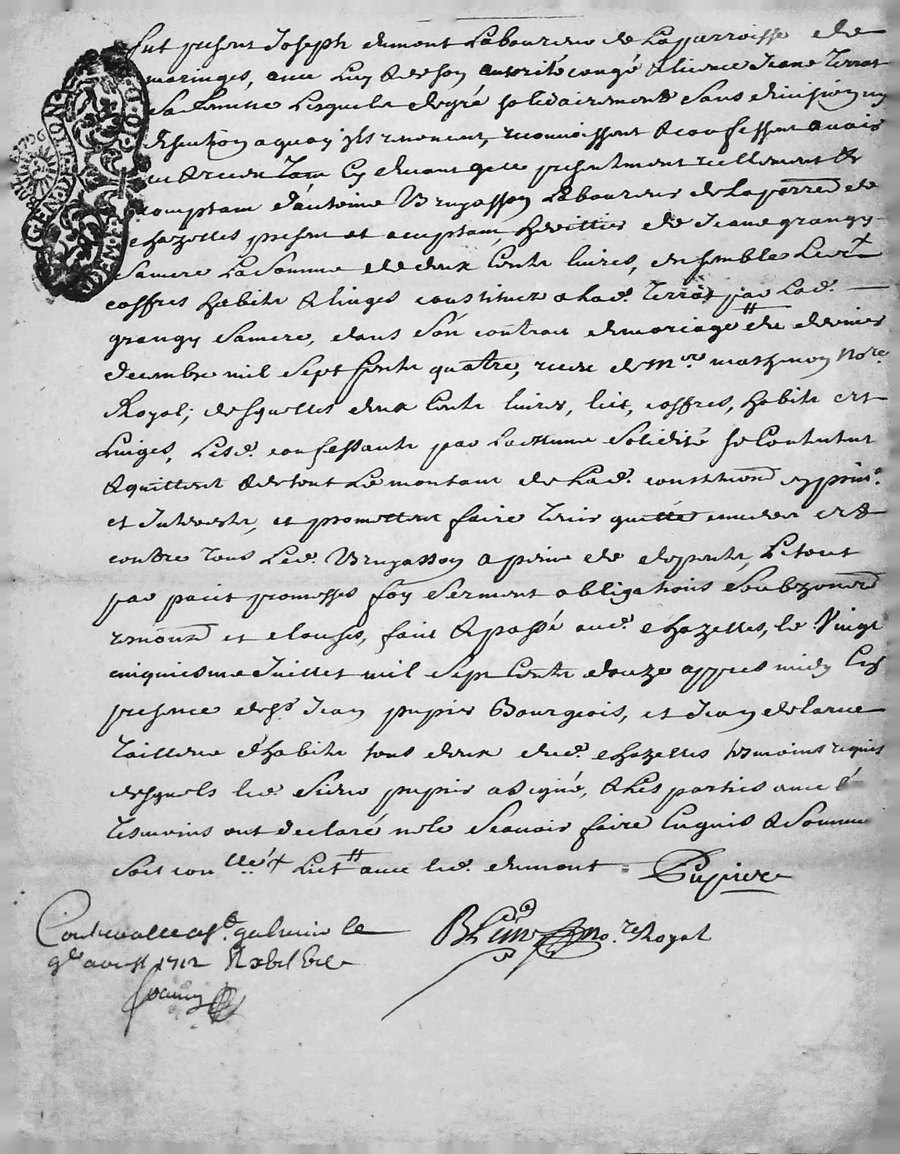 fut present Joseph dumont Laboureur de La parroisse de
maringes, avec Luy & de son autorité congé & licence Jeane Terrat
sa femme Lesquels de gré solidairement sans division ny
discution a quoy ils renoncent, reconnoissent & confessent avoir
eu & receu Tant cy devant que presentment reellement &
comptant d'antoine Bruyasson Laboureur de La parred de
chazelles present et acceptant, heritier de Jeane grangy
sa mere La Somme de deux Cents livres, ensembles Le +
coffres habits & linges constituez a Lad. Terrat par Lad.
grangy sa mere, dans son contrat de mariage # du dernier
decembre mil sept Cents quatre, receu de Mre mathevon Nore
Royal; desquelles deux Cents livres, lict, coffres, habits et
Linges, Lesd. confessants par La mesme solidité se Contentent
& quittent & de tout Le montant de Lad. constitutiond en prinal
et Interests, et promettent faire tenir quitte envers et
contre tous Led. Bruyasson a peine de depents, Le tout
par pact promesses foy serment obligations soubz
renond et clauses, fait & passé aud. chazelles, le Vingt
cinquiesme Juillet mil sept Cents douze appres midy En
presence de sr Jean pupier Bourgeois, et Jean delarue
Tailleur d'habits tous deux dud. chazelles tesmoins requis
desquels led. Sieur pupier a signé, & Les parties avec l'
tesmoins ont declaré ne le scavoir faire Enquis & Sommé
Soit conllé + Lict # avec led. dumont Pupier
Controlle a St. galmier le
9e aoust 1712 R
nore Royal
GEN. DE LION